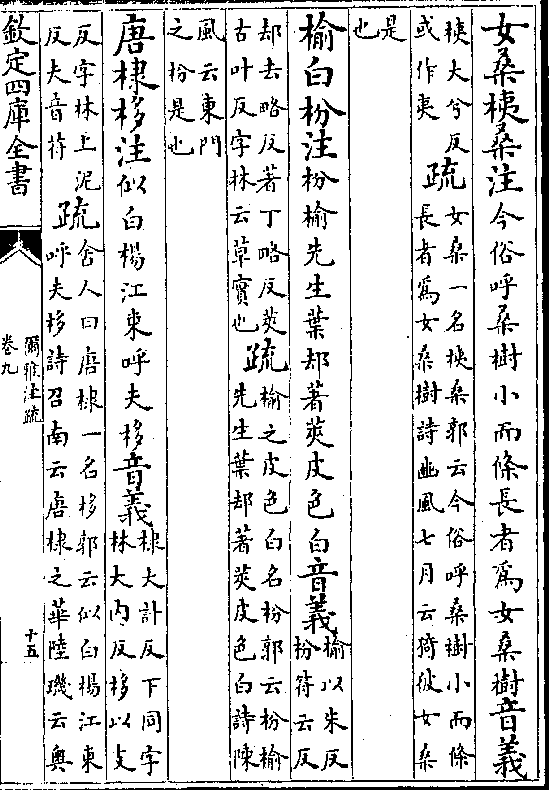 女桑桋桑注今俗呼桑樹小而條長者為女桑樹音義
桋大兮反
或作夷
疏
女桑一名桋桑郭云今俗呼桑樹小而條
長者為女桑樹詩豳風七月云猗彼女桑
是
也
榆白枌注枌榆先生葉却著莢皮色白音義
榆以朱反
枌符云反
却去略反著丁略反莢
古叶反字林云草實也
疏
榆之皮色白名枌郭云枌榆
先生葉却著莢皮色白詩陳
風云東門
之枌是也
唐棣栘注似白楊江東呼夫栘音義
棣大計反下同字
林大內反栘以支
反字林上泥
反夫音符
疏
舍人曰唐棣一名栘郭云似白楊江東
呼夫栘詩召南云唐棣之華陸璣云奥
欽定四庫全書
爾雅注疏
卷九
十五